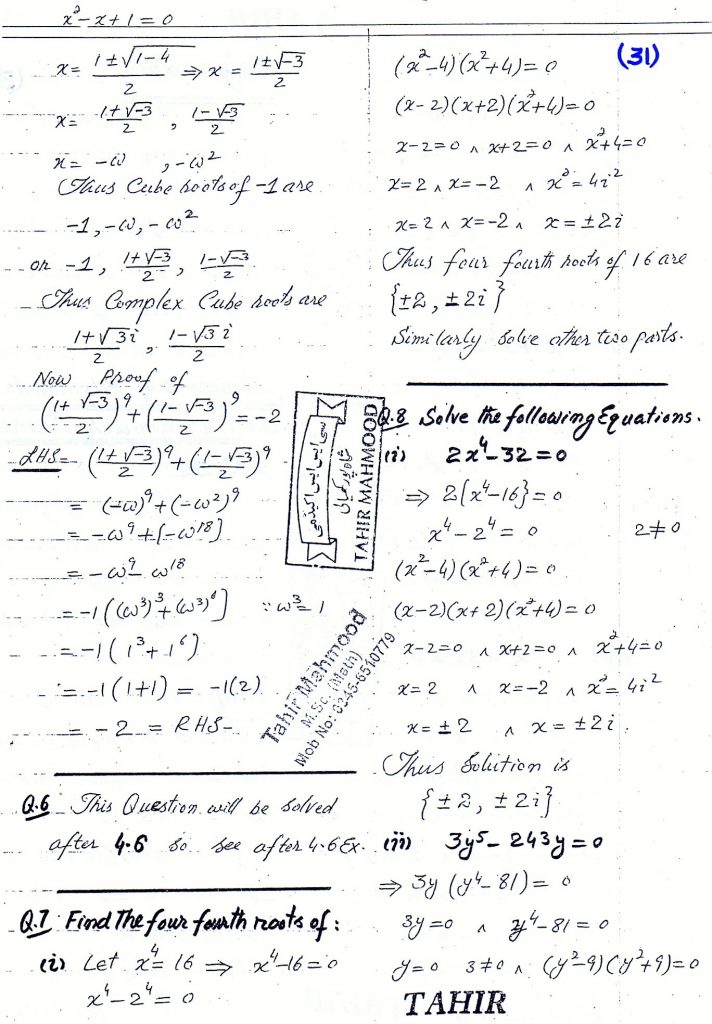 x² - x + 1 = 0
x = (1 ± √(1-4))/2 ⇒ x = (1 ± √-3)/2
x = (1+√-3)/2 , (1-√-3)/2
x = -ω , -ω²
Thus Cube roots of -1 are
-1, -ω, -ω²
or -1, (1+√-3)/2 , (1-√-3)/2
Thus Complex Cube roots are
(1+√3i)/2 , (1-√3i)/2
Now Proof of
((1+√-3)/2)⁹ + ((1-√-3)/2)⁹ = -2
LHS = ((1+√-3)/2)⁹ + ((1-√-3)/2)⁹
= (-ω)⁹ + (-ω²)⁹
= -ω⁹ + [-ω¹⁸]
= -ω⁹ - ω¹⁸
= -1((ω³)³ + (ω³)⁶] ∵ ω³ = 1
= -1(1³ + 1⁶)
= -1(1+1) = -1(2)
= -2 = RHS-
Q.6 This Question will be solved
after 4.6 so see after 4.6 Ex.
Q.7 Find The four fourth roots of :
(i) Let x⁴ = 16 ⇒ x⁴ - 16 = 0
x⁴ - 2⁴ = 0
(31)
(x² - 4)(x² + 4) = 0
(x - 2)(x + 2)(x² + 4) = 0
x - 2 = 0 ∧ x + 2 = 0 ∧ x² + 4 = 0
x = 2 ∧ x = -2 ∧ x² = 4i²
x = 2 ∧ x = -2 ∧ x = ±2i
Thus four fourth roots of 16 are
{±2, ±2i}
Similarly solve other two parts.
Q.8 Solve the following Equations.
(i) 2x⁴ - 32 = 0
⇒ 2{x⁴ - 16} = 0
x⁴ - 2⁴ = 0 2 ≠ 0
(x² - 4)(x² + 4) = 0
(x - 2)(x + 2)(x² + 4) = 0
x - 2 = 0 ∧ x + 2 = 0 ∧ x² + 4 = 0
x = 2 ∧ x = -2 ∧ x² = 4i²
x = ±2 ∧ x = ±2i
Thus Solution is
{±2, ±2i}
(ii) 3y⁵ - 243y = 0
⇒ 3y(y⁴ - 81) = 0
3y = 0 ∧ y⁴ - 81 = 0
y = 0 3 ≠ 0 ∧ (y² - 9)(y² + 9) = 0
TAHIR
سی ایس ایس اکیڈمی
TAHIR MAHMOOD
Tahir Mahmood
M.Sc. (Math)
Mob No: 0345-6510779